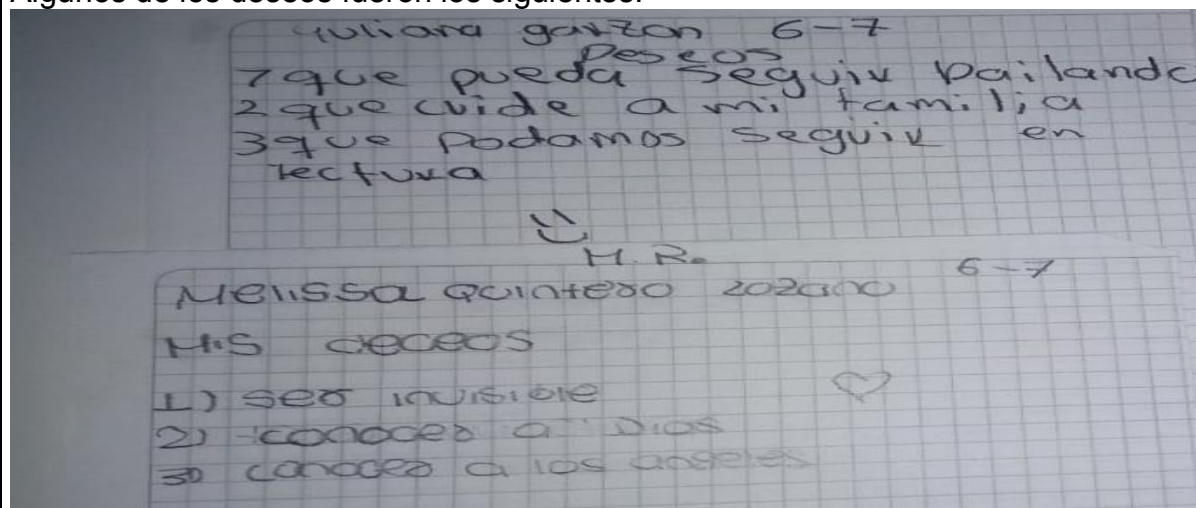 Algunos de los deseos fueron los siguientes:
Yuliana garzon 6-7
Deseos
1 que pueda seguir bailando
2 que cuide a mi familia
3 que podamos seguir en
lectura
H.R.
Melissa Quintero lozano 6-7
Mis deceos
1) ser invisible
2) conocer a Dios
3) conocer a los angeles